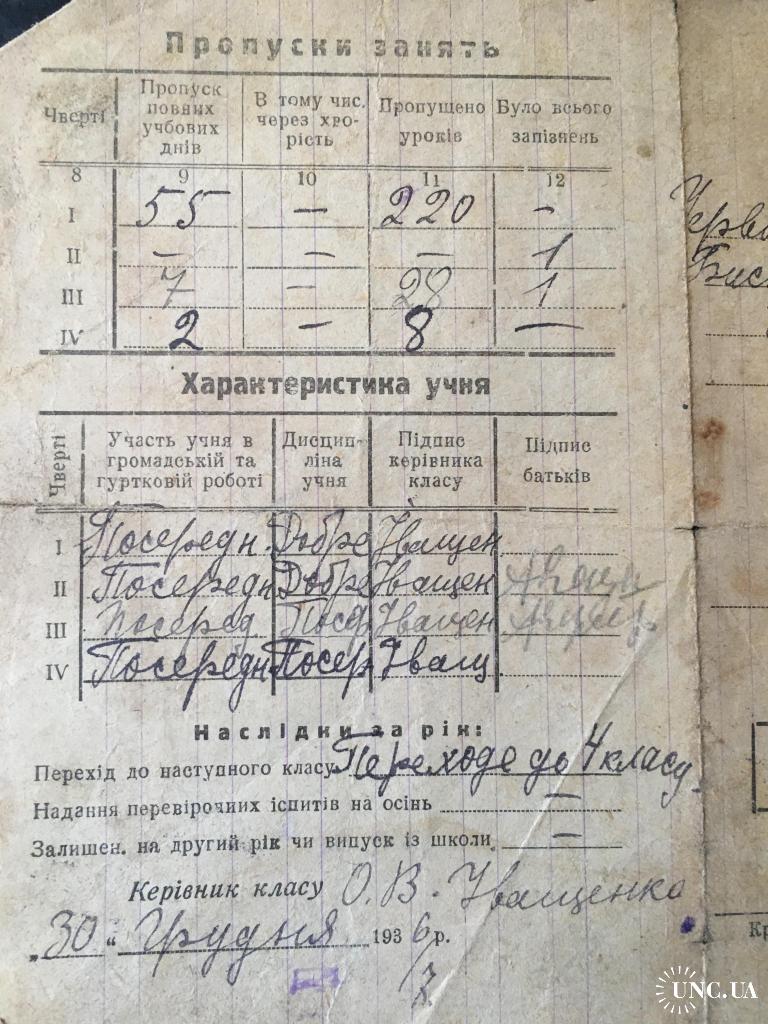 Пропуски занять
Чверті Пропуск повних учбових днів В тому чис. через хро-рість Пропущено уроків Було всього запізнень
8 9 10 11 12
I 55 — 220 -
II — — — 1
III 7 — 28 1
IV 2 — 8 —
Характеристика учня
Чверті Участь учня в громадській та гуртковій роботі Дисцип-ліна учня Підпис керівника класу Підпис батьків
I Посередн. Добре Іващен
II Посередн Добре Іващен
III Посеред. Посер Іващен
IV Посередн Посер Іващ
Наслідки за рік:
Перехід до наступного класу Переходе до 4 класу.
Надання перевірочних іспитів на осінь —
Залишен. на другий рік чи випуск із школи —
Керівник класу О. В. Іващенко
„30“ Грудня 1936 р.
7
Черво
Бис
Кр
UNC.UA